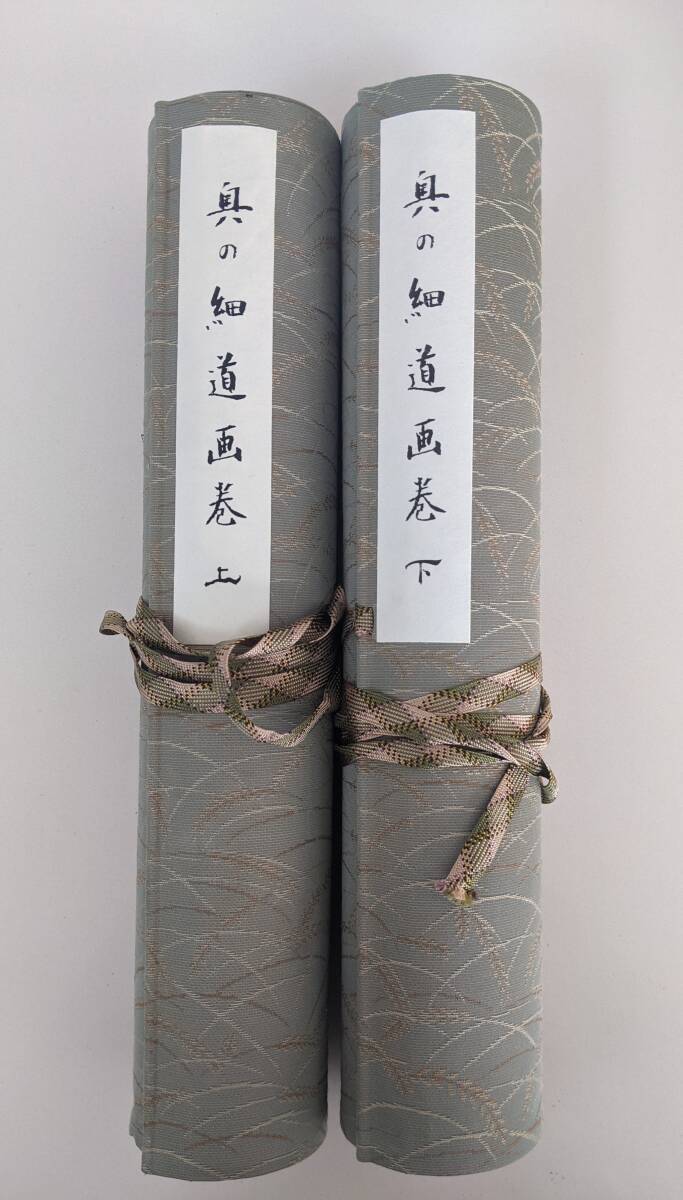 奥の細道画巻 上
奥の細道画巻 下